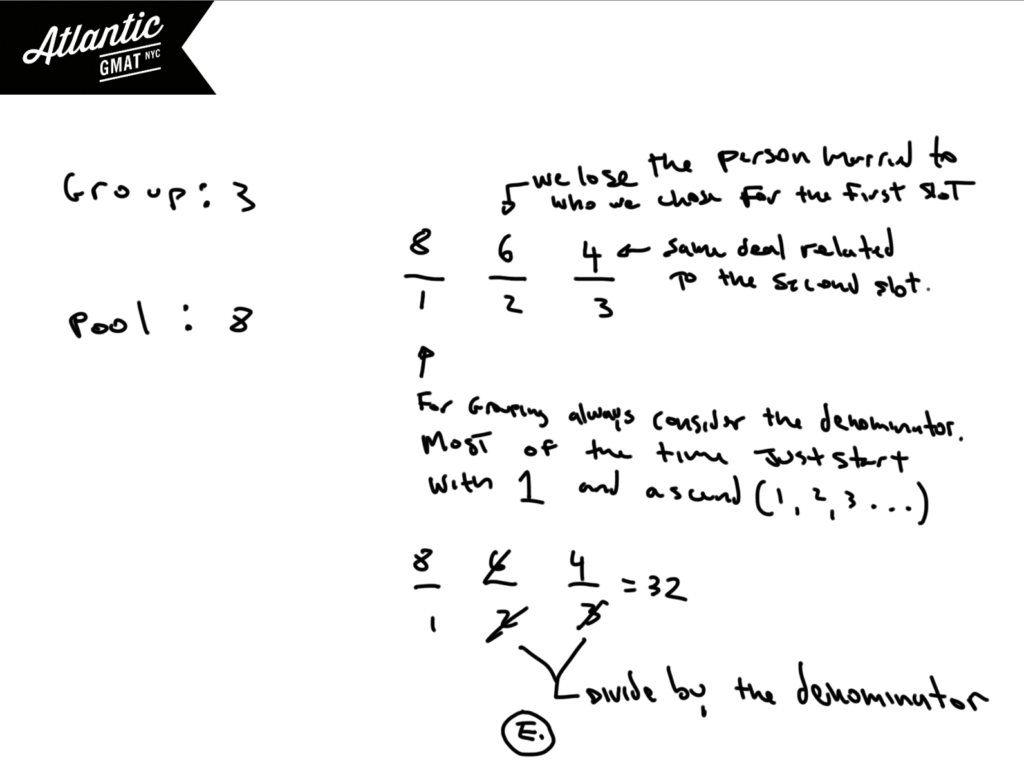 Atlantic
GMAT NYC
Group: 3
Pool: 8
we lose the person married to
who we chose for the first slot
8 6 4 ← same deal related
1 2 3 to the second slot.
For Grouping always consider the denominator.
Most of the time just start
with 1 and ascend (1, 2, 3 ...)
8 6 4 = 32
1 2 3
Divide by the denominator
E.